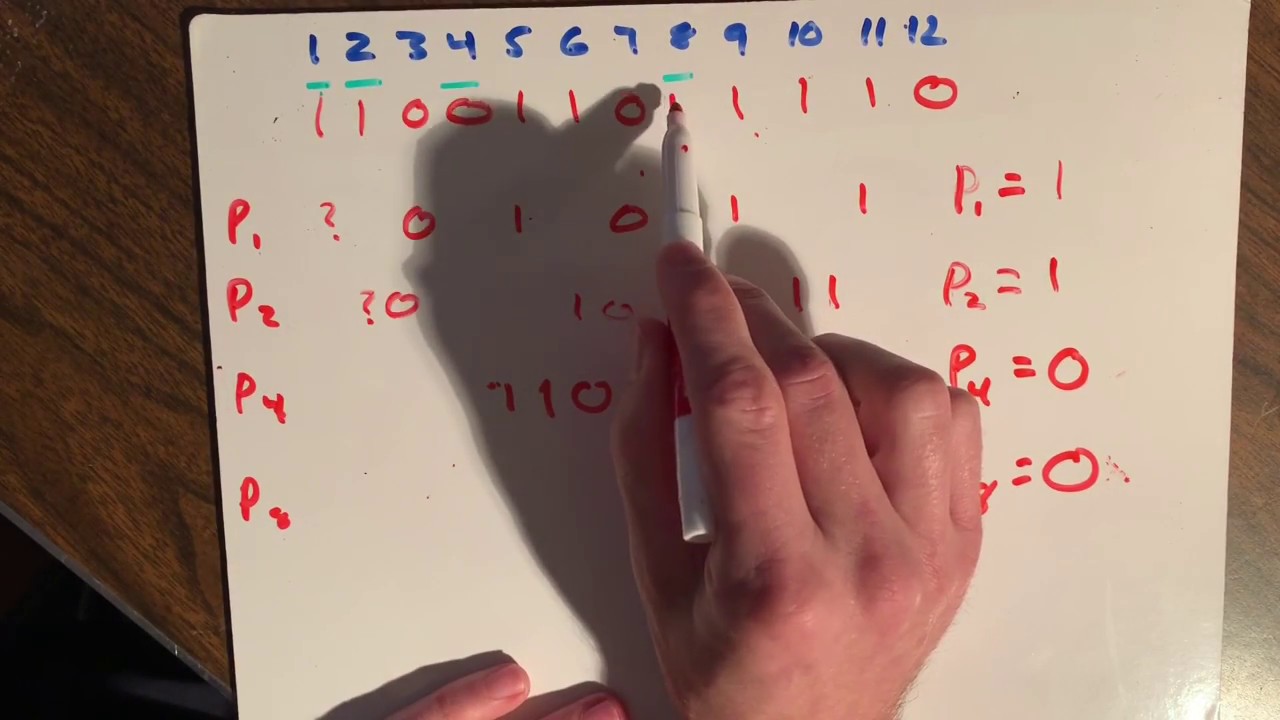 1 2 3 4 5 6 7 8 9 10 11 12
1 1 0 0 1 1 0 1 1 1 1 0
P1 ? 0 1 0 1 1 P1 = 1
P2 ? 0 1 0 1 1 P2 = 1
P4 1 1 0 P4 = 0
P8 = 0